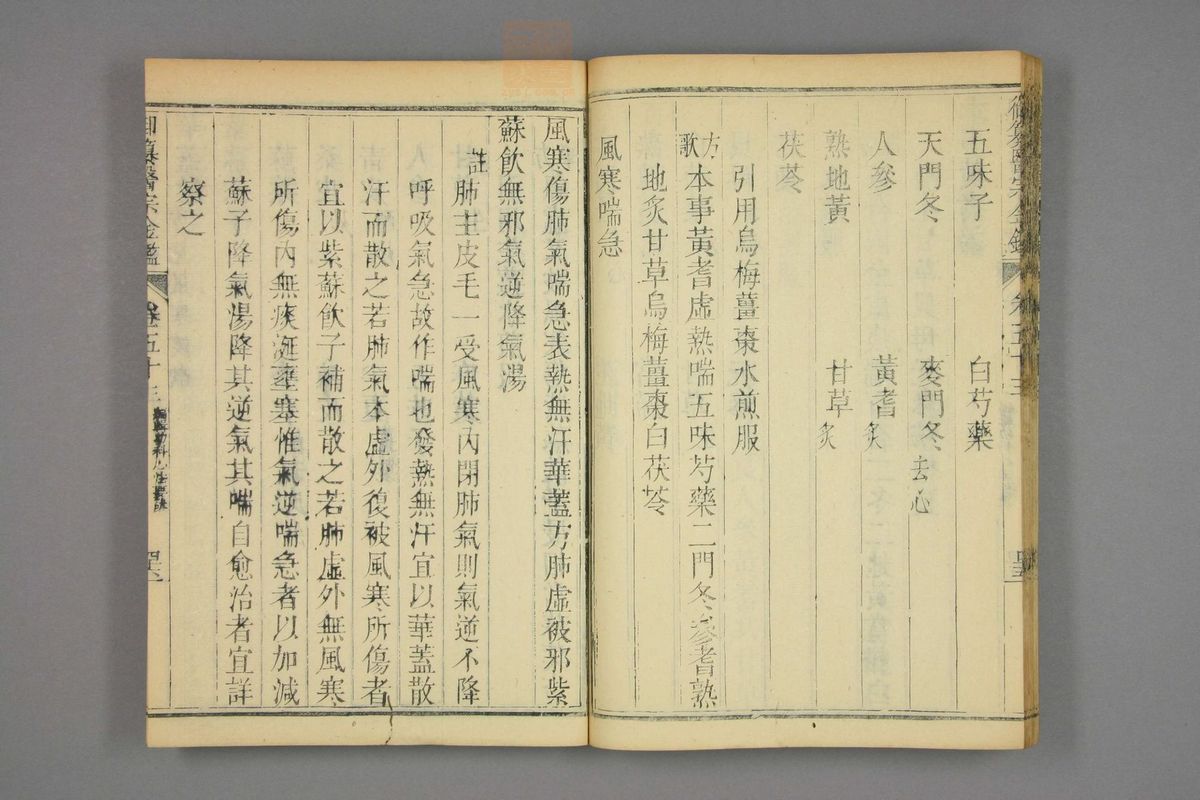 御纂醫宗金鑑 卷五十三
五味子 白芍藥
天門冬 麥門冬去心
人參 黃耆炙
熟地黃 甘草炙
茯苓
引用烏梅薑棗水煎服
方歌 本事黃耆虛熱喘五味芍藥二門冬參耆熟
地炙甘草烏梅薑棗白茯苓
風寒喘急
風寒傷肺氣喘急表熱無汗華蓋方肺虛被邪紫
蘇飲無邪氣逆降氣湯
註 肺主皮毛一受風寒內閉肺氣則氣逆不降
呼吸氣急故作喘也發熱無汗宜以華蓋散
汗而散之若肺氣本虛外復被風寒所傷者
宜以紫蘇飲子補而散之若肺虛外無風寒
所傷內無痰涎壅塞惟氣逆喘急者以加減
蘇子降氣湯降其逆氣其喘自愈治者宜詳
察之
御纂醫宗金鑑 卷五十三 編輯幼科心法要訣